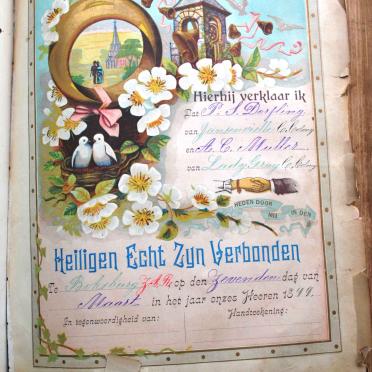 Hierbij verklaar ik
Dat P. S. Dorfling
van Jansenville C. Colony
en A. C. Muller
van Lady Grey C. Colony
HEDEN DOOR MIJ IN DEN
Heiligen Echt Zyn Verbonden
Te Boksburg Z.A.R. op den Zevenden dag van
Maart in het jaar onzes Heeren 1899.
In tegenwoordigheid van: Handteekening: